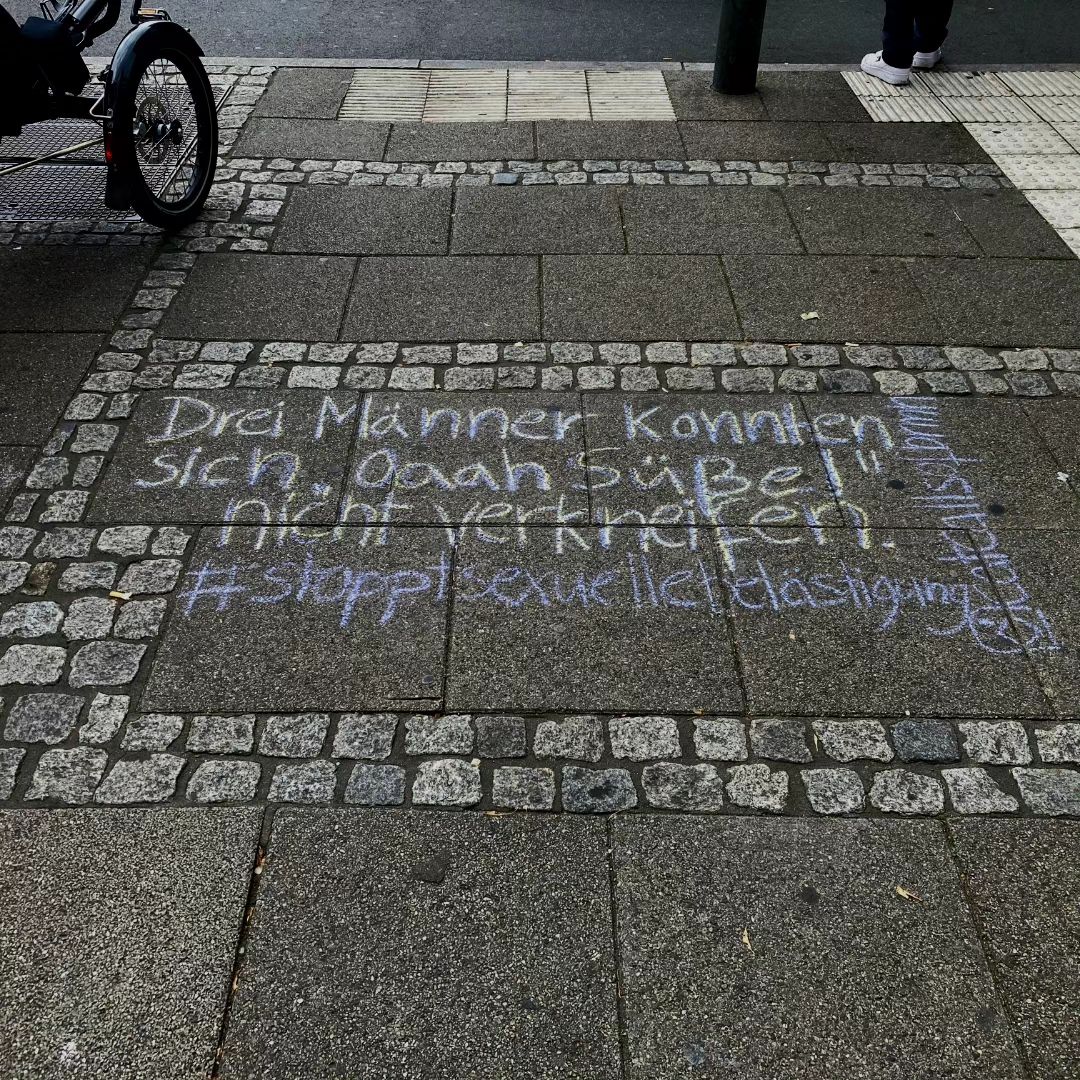 Drei Männer Konnten
sich „aaah Süße!"
nicht verkneifen.
#stopptsexuellebelästigung